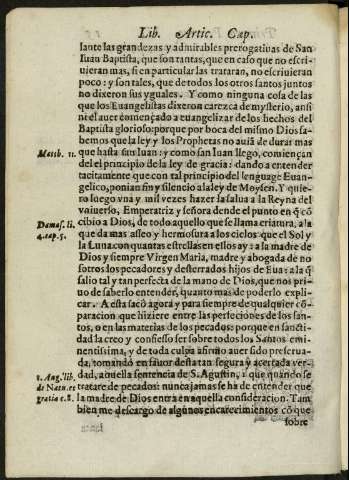 Lib. Artic. Cap.
lante las grandezas y admirables prerogatiuas de San
Iuan Baptista, que son tantas, que en caso que no escri-
uieran mas, si en particular las trataran, no escriuieran
poco: y son tales, que de todos los otros santos juntos
no dixeron sus yguales. Y como ninguna cosa de las
que los Euangelistas dixeron carezca de mysterio, ansi
ni el auer començado a euangelizar de los hechos del
Baptista glorioso: porque por boca del mismo Dios sa-
bemos que la ley y los Prophetas no auiā de durar mas
Matth. 11.
que hasta sus Iuan: y como san Iuan llegò, comiençan
del el principio de la ley de gracia: dando a entender
tacitamente que con tal principio del lenguage Euan-
gelico, ponian fin y silencio a la ley de Moysen. Y quie-
ro luego vna y mil vezes hazer la salua a la Reyna del
vniuerso, Emperatriz y señora dende el punto en q̃ cō
Damas. li.
cibio a Dios, de todo aquello que se llama criatura, a la
4. cap. 5.
que da mas asseo y hermosura a los cielos que el Sol y
la Luna con quantas estrellas en ellos ay: a la madre de
Dios y siempre Virgen Maria, madre y abogada de no
sotros los pecadores y desterrados hijos de Eua: a la q̃
salio tal y tan perfecta de la mano de Dios, que nos pri-
uo de saberlo entender, quanto mas de poderlo expli
car. A esta saco agora y para siempre de qualquier cō-
paracion que hiziere entre las perfeciones de los san-
tos, o en las materias de los pecados: porque en sancti-
dad la creo y confiesso ser sobre todos los Santos emi
nentissima, y de toda culpa afirmo auer sido preserua-
da, tomando en fauor desta tan segura y acertada ver-
1. Aug. lib.
dad, aquella sentencia de S. Agustin, que quando se
de Natu. et
tratare de pecados: nunca jamas se ha de entender que
gratia c. 8.
la madre de Dios entra en aquella consideracion. Tam
bien me descargo de algunos encarecimientos cō que
sobre